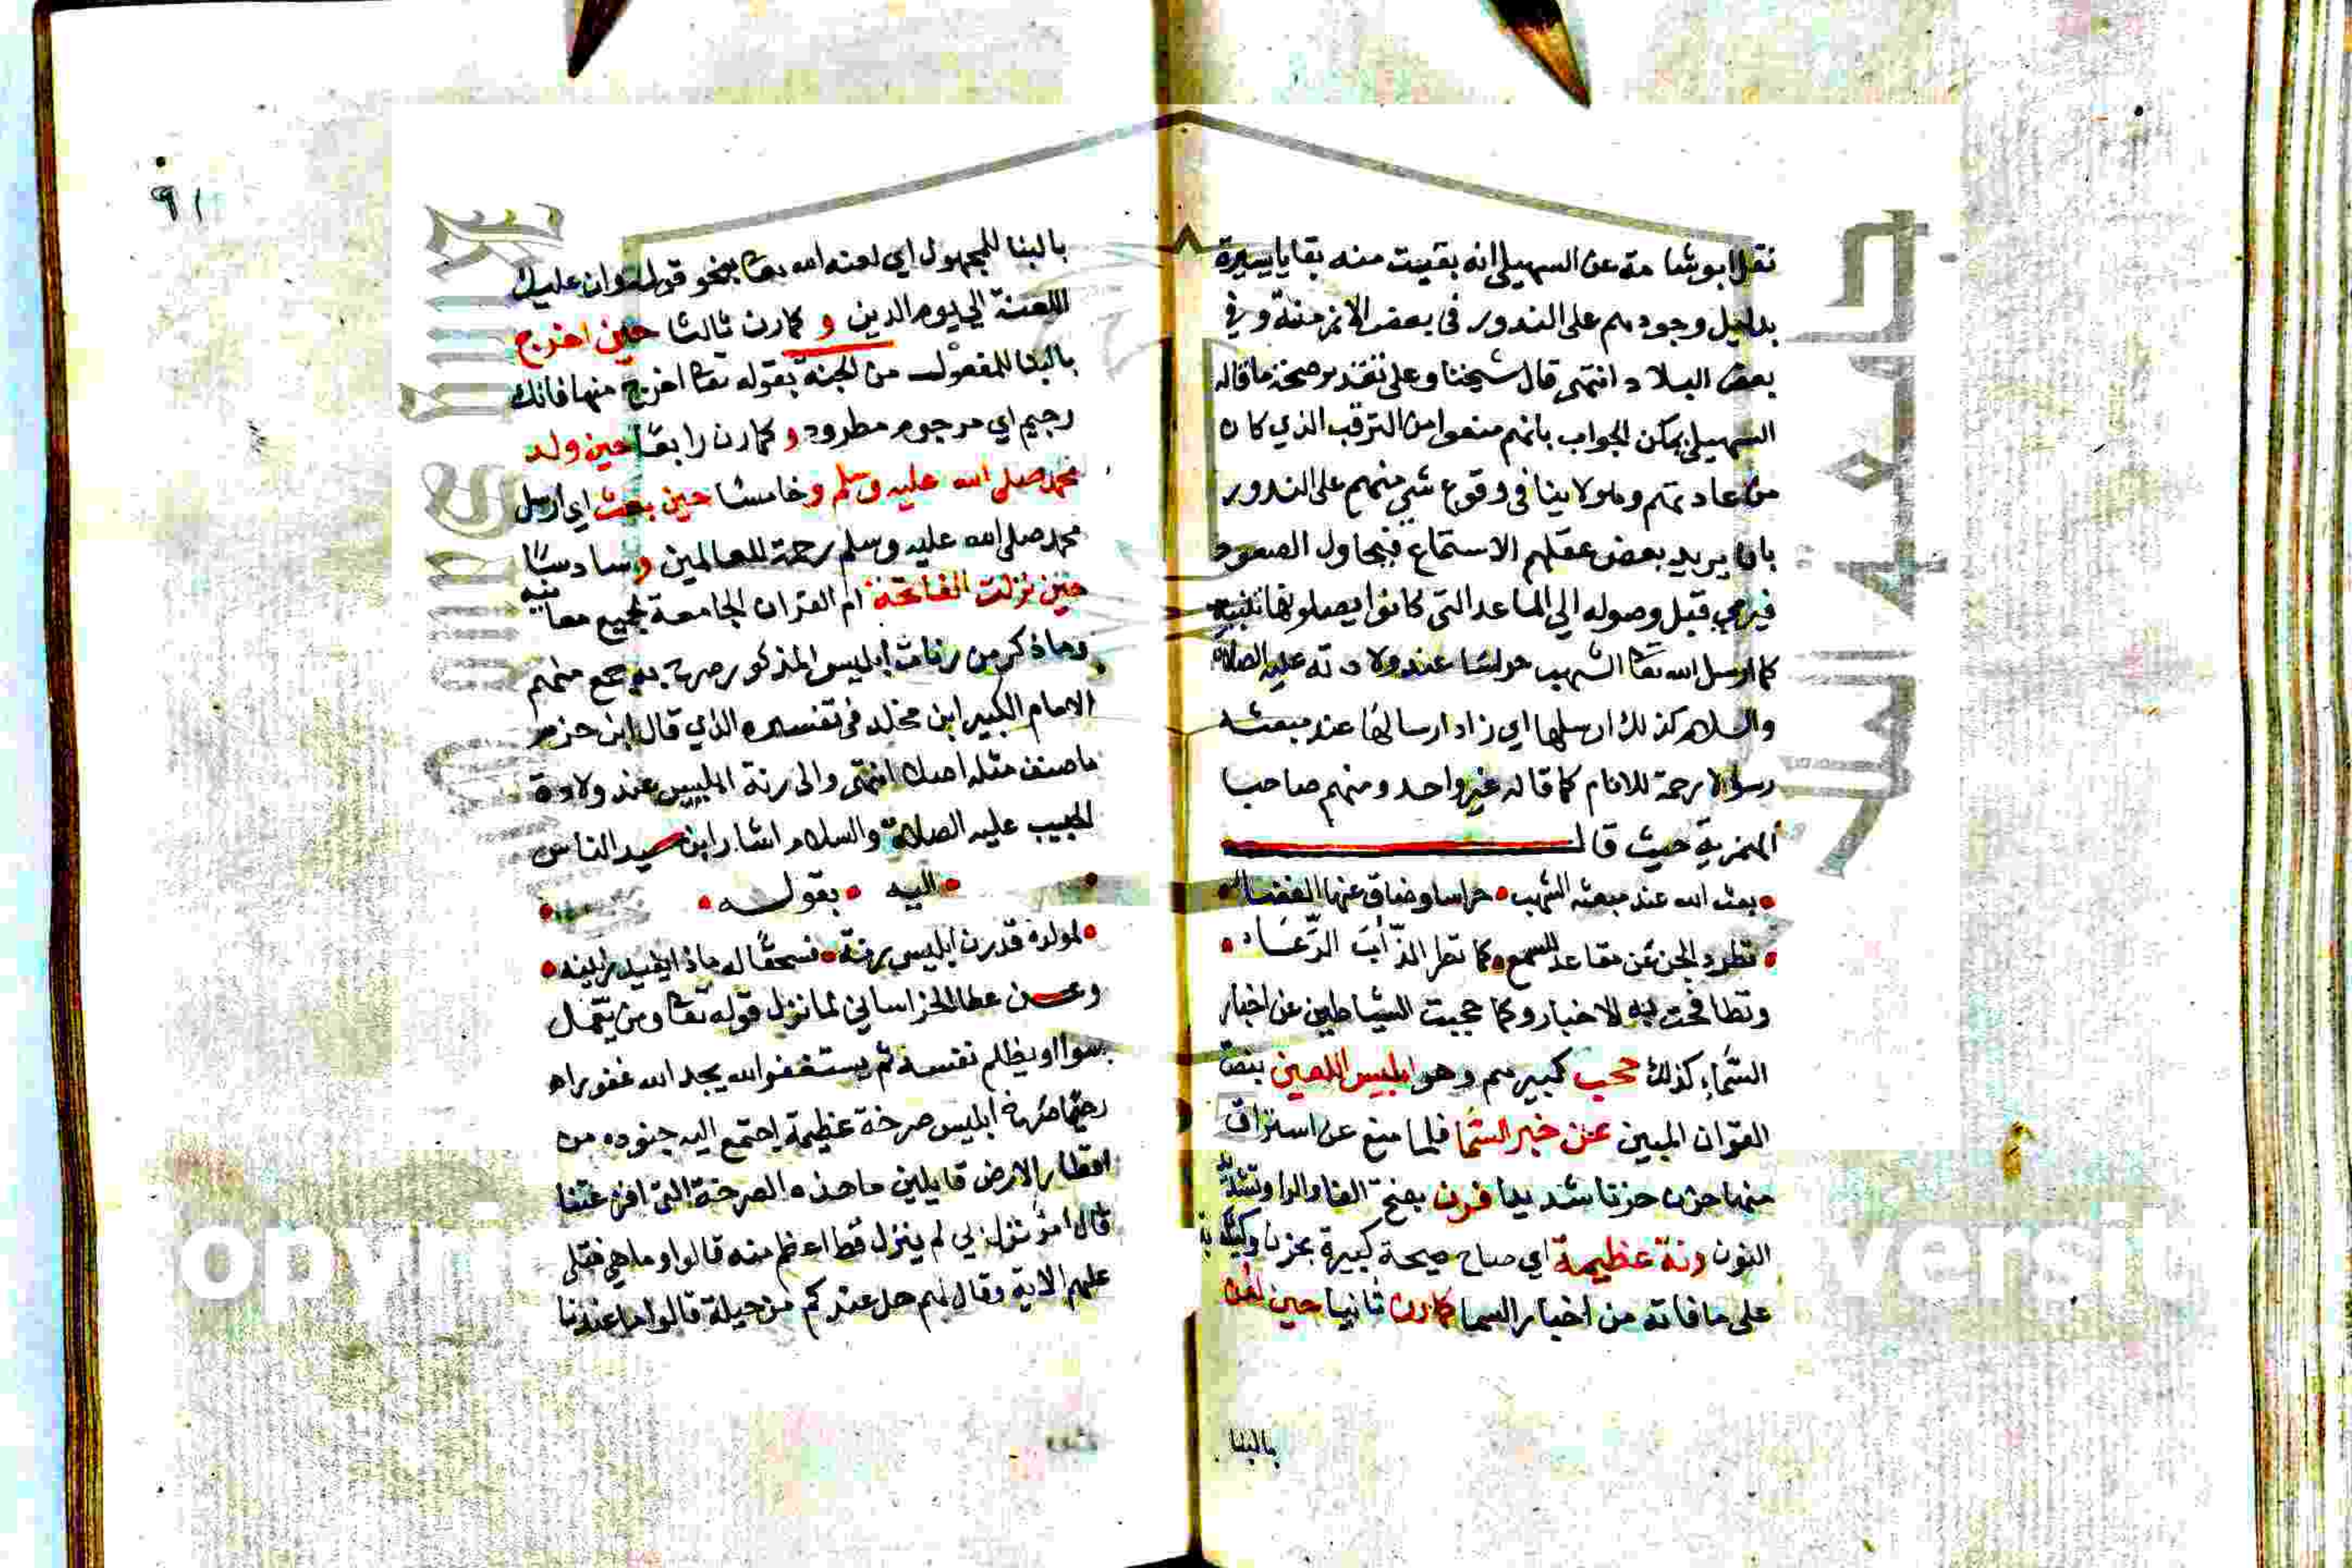 نقل ابو شامة عن السهيلي انه بقيت منه بقايا يسيرة
بدليل وجودهم على الندور في بعض الازمنة وفي
بعض البلاد انتهى قال شيخنا وعلى تقدير صحة ما قاله
السهيلي يمكن الجواب بانهم منعوا من الترقب الذي كان
من عادتهم وهو لا ينافي وقوع شي منهم على الندور
بان يريد بعض عقلهم الاستماع فيحاول الصعود
فيرمى قبل وصوله الى المقاعد التي كانوا يصلونها
كما ارسل الله تعا الشهب حرسا عند ولادته عليه الصلاة
والسلام كذلك ارسلها اي زاد ارسالها عند مبعثه
رسولا رحمة للانام كما قاله غير واحد ومنهم صاحب
الهمزية حيث قال
بعث الله عند مبعثه الشهب • حراسا وضاق عنها الفضاء •
• تطرد الجن عن مقاعد للسمع • كما تطرد الذئاب الرعاء •
وتظافحت به الاخبار وكما حجبت الشياطين عن اخبار
السماء كذلك حجب كبيرهم وهو ابليس اللعين بنص
القران المبين عن خبر السما فلما منع عن استراق
منها حزن حزنا شديدا فرن بفتح الفا والرا وتشديد
النون رنة عظيمة اي صاح صيحة كبيرة بحزن
على ما فاته من اخبار السما كما رن ثانيا حين لعن
بالبنا
٩١
بالبنا للمجهول اي لعنه الله تعا بنحو قوله وان عليك
اللعنة الي يوم الدين و كما رن ثالثا حين اخرج
بالبنا للمفعول من الجنة بقوله تعا اخرج منها فانك
رجيم اي مرجوم مطرود و كما رن رابعا حين ولد
محمد صلى الله عليه وسلم وخامسا حين بعث اي ارسل
محمد صلى الله عليه وسلم رحمة للعالمين وسادسا
حين نزلت الفاتحة ام القران الجامعة لجميع معانيه
وما ذكر من رنات ابليس المذكور صرح به جمع منهم
الامام الكبير ابن مخلد في تفسيره الذي قال ابن حزم
ما صنف مثله احد انتهى والى رنة ابليس عند ولادة
الحبيب عليه الصلاة والسلام اشار ابن سيد الناس
• اليه • بقوله •
• لمولده قد رن ابليس رنة • فسحقا له ماذا يفيد رنينه •
وعن عطا الخراساني لما نزل قوله تعا ومن يعمل
سوا او يظلم نفسه ثم يستغفر الله يجد الله غفورا
رحيما صرخ ابليس صرخة عظيمة اجتمع اليه جنوده من
اقطار الارض قايلين ما هذه الصرخة التي افزعتنا
قال امر نزل بي لم ينزل قط اعظم منه قالوا وما هي فتلى
عليهم الاية وقال لهم هل عندكم من حيلة قالوا ما عندنا